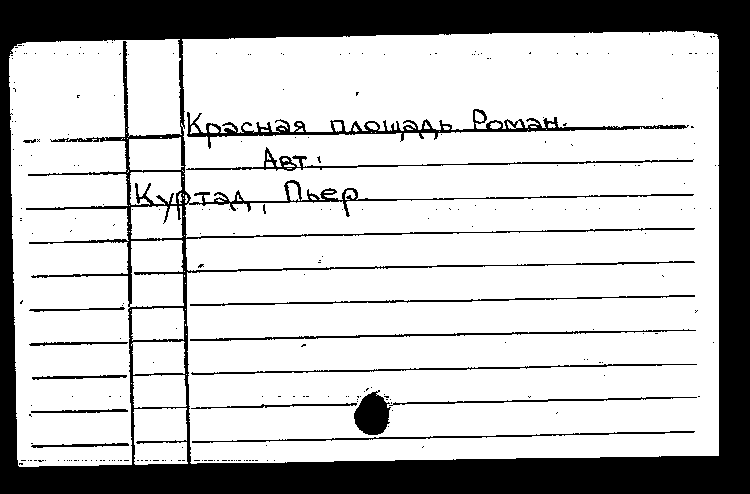 Красная площадь. Роман.
Авт.:
Куртад, Пьер.